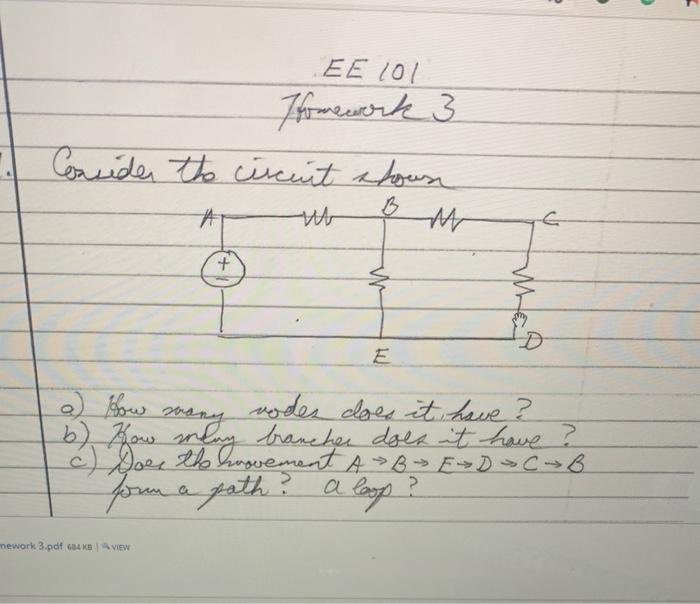 EE 101
Homework 3
1. Consider the circuit shown
A B C
+
-
E D
a) How many nodes does it have?
b) How many branches does it have?
c) Does the movement A → B → E → D → C → B
form a path? a loop?
mework 3.pdf 684 KB | VIEW